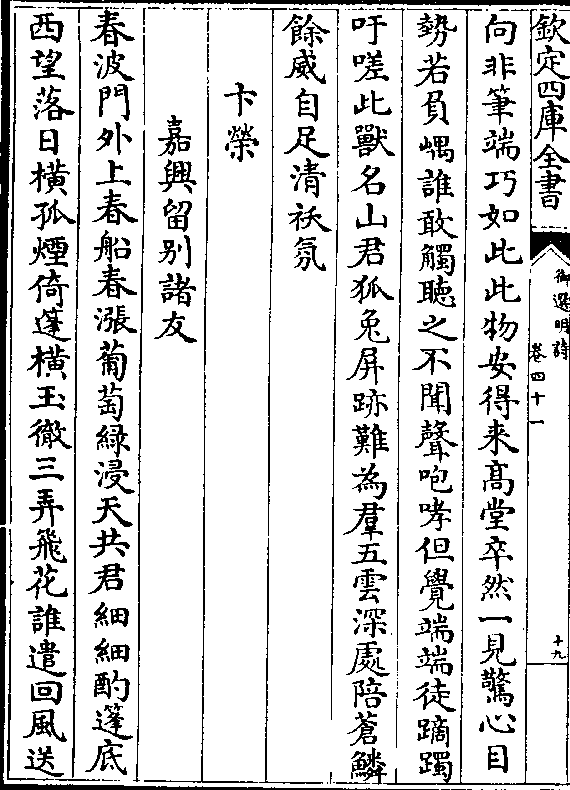 欽定四庫全書
御選明詩
卷四十一
十九
向非筆端巧如此此物安得来髙堂卒然一見驚心目
勢若負嵎誰敢觸聽之不聞聲咆哮但覺端端徒蹢躅
吁嗟此獸名山君狐兔屏跡難為羣五雲深處陪蒼鱗
餘威自足清祅氛
卞榮
嘉興留别諸友
春波門外上春船春漲葡萄綠浸天共君細細酌篷底
西望落日橫孤煙倚篷橫玉徹三弄飛花誰遣回風送